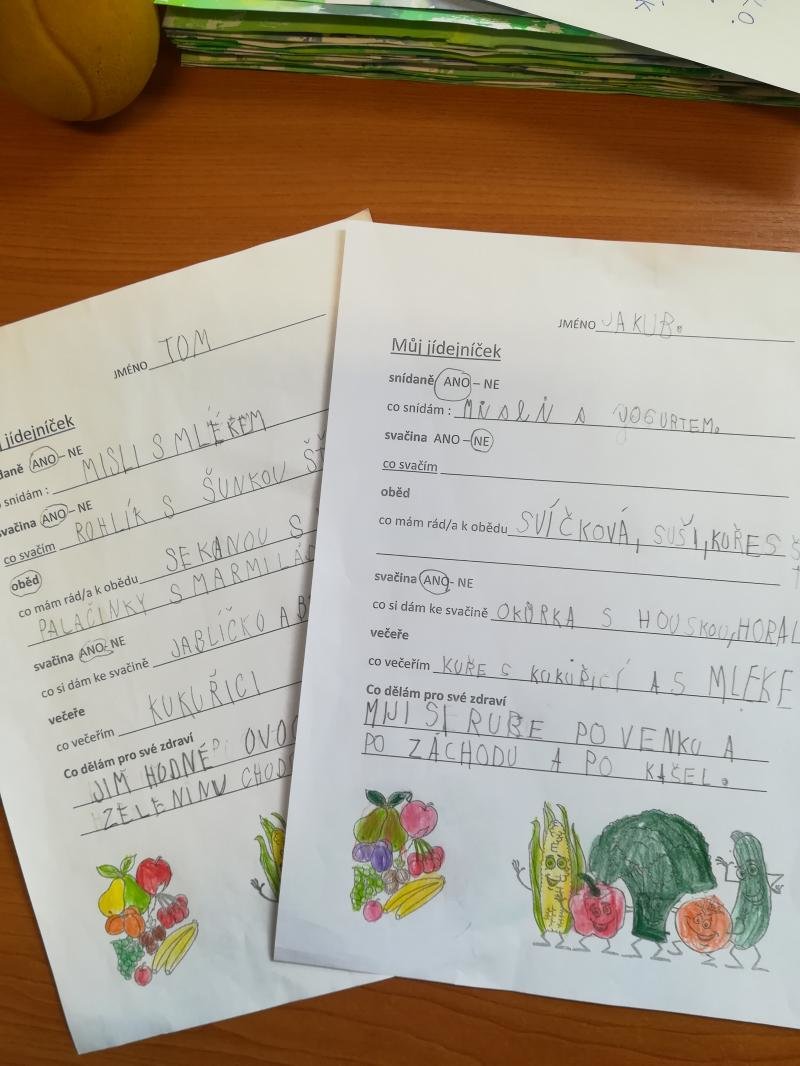 JMÉNO TOM
jídejníček
daně ANO – NE
snídám : MISLI S MLÉKEM
svačina ANO – NE
co svačím ROHLÍK S ŠUNKOU
oběd
co mám rád/a k obědu SEKANOU S
PALAČINKY S MARMILÁD
svačina ANO – NE
co si dám ke svačině JABLÍČKO A
večeře
co večeřím KUKUŘICI
Co dělám pro své zdraví
JIM HODNĚ OVOC
ZELENINU CHOD
JMÉNO JAKUB.
Můj jídejníček
snídaně ANO – NE
co snídám : S JOGURTEM.
svačina ANO – NE
co svačím
oběd
co mám rád/a k obědu SVÍČKOVÁ, SUŠI, KUŘE S
svačina ANO – NE
co si dám ke svačině OKURKA S HOUSKOU, HORAL
večeře
co večeřím KUŘE S KUKUŘICÍ A S MLEKE
Co dělám pro své zdraví
MIJI SI RUBE PO VENKU A
PO ZÁCHODU A PO KAŠEL.